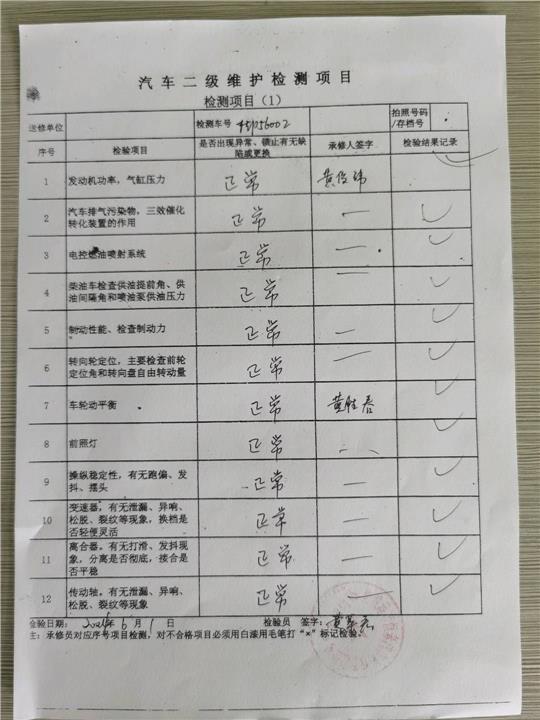 汽车二级维护检测项目
检测项目（1）
送修单位 检测车号 拍照号码/存档号
序号 检验项目 是否出现异常、锁止有无缺陷或更换 承修人签字 检验结果记录
1 发动机功率，气缸压力 正常
2 汽车排气污染物，三效催化转化装置的作用 正常 — ✓
3 电控燃油喷射系统 正常 — ✓
4 柴油车检查供油提前角、供油间隔角和喷油泵供油压力 正常 — ✓
5 制动性能、检查制动力 正常 — ✓
6 转向轮定位，主要检查前轮定位角和转向盘自由转动量 正常 — ✓
7 车轮动平衡 正常 黄胜春 ✓
8 前照灯 正常 — ✓
9 操纵稳定性，有无跑偏、发抖、摆头 正常 — ✓
10 变速器，有无泄漏、异响、松脱、裂纹等现象，换档是否轻便灵活 正常 — ✓
11 离合器，有无打滑、发抖现象，分离是否彻底，接合是否平稳 正常 — ✓
12 传动轴，有无泄漏、异响、松脱、裂纹等现象 正常 — ✓
检验日期： 年 6 月 1 日 检验员 签字：
主：承修员对应序号项目检测，对不合格项目必须用白漆用毛笔打“×”标记检验。